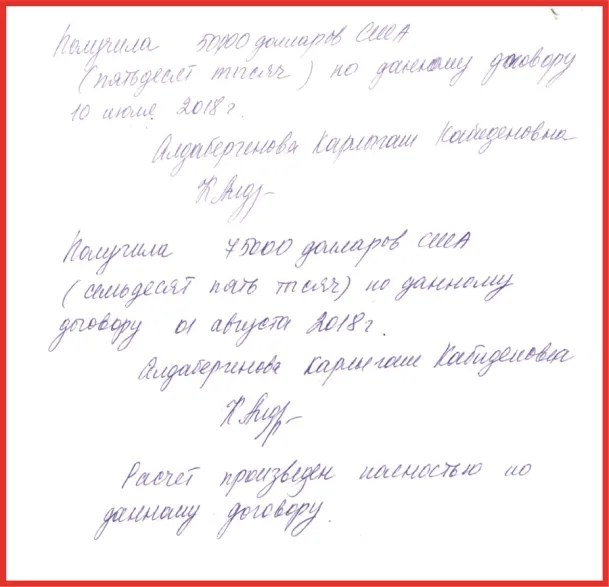 Получила 50000 долларов США
(пятьдесят тысяч) по данному договору
10 июля 2018 г.
Алдабергенова Карлыгаш Кабиденовна
Получила 75000 долларов США
(семьдесят пять тысяч) по данному
договору 01 августа 2018 г.
Алдабергенова Карлыгаш Кабиденовна
Расчет произведен полностью по
данному договору.